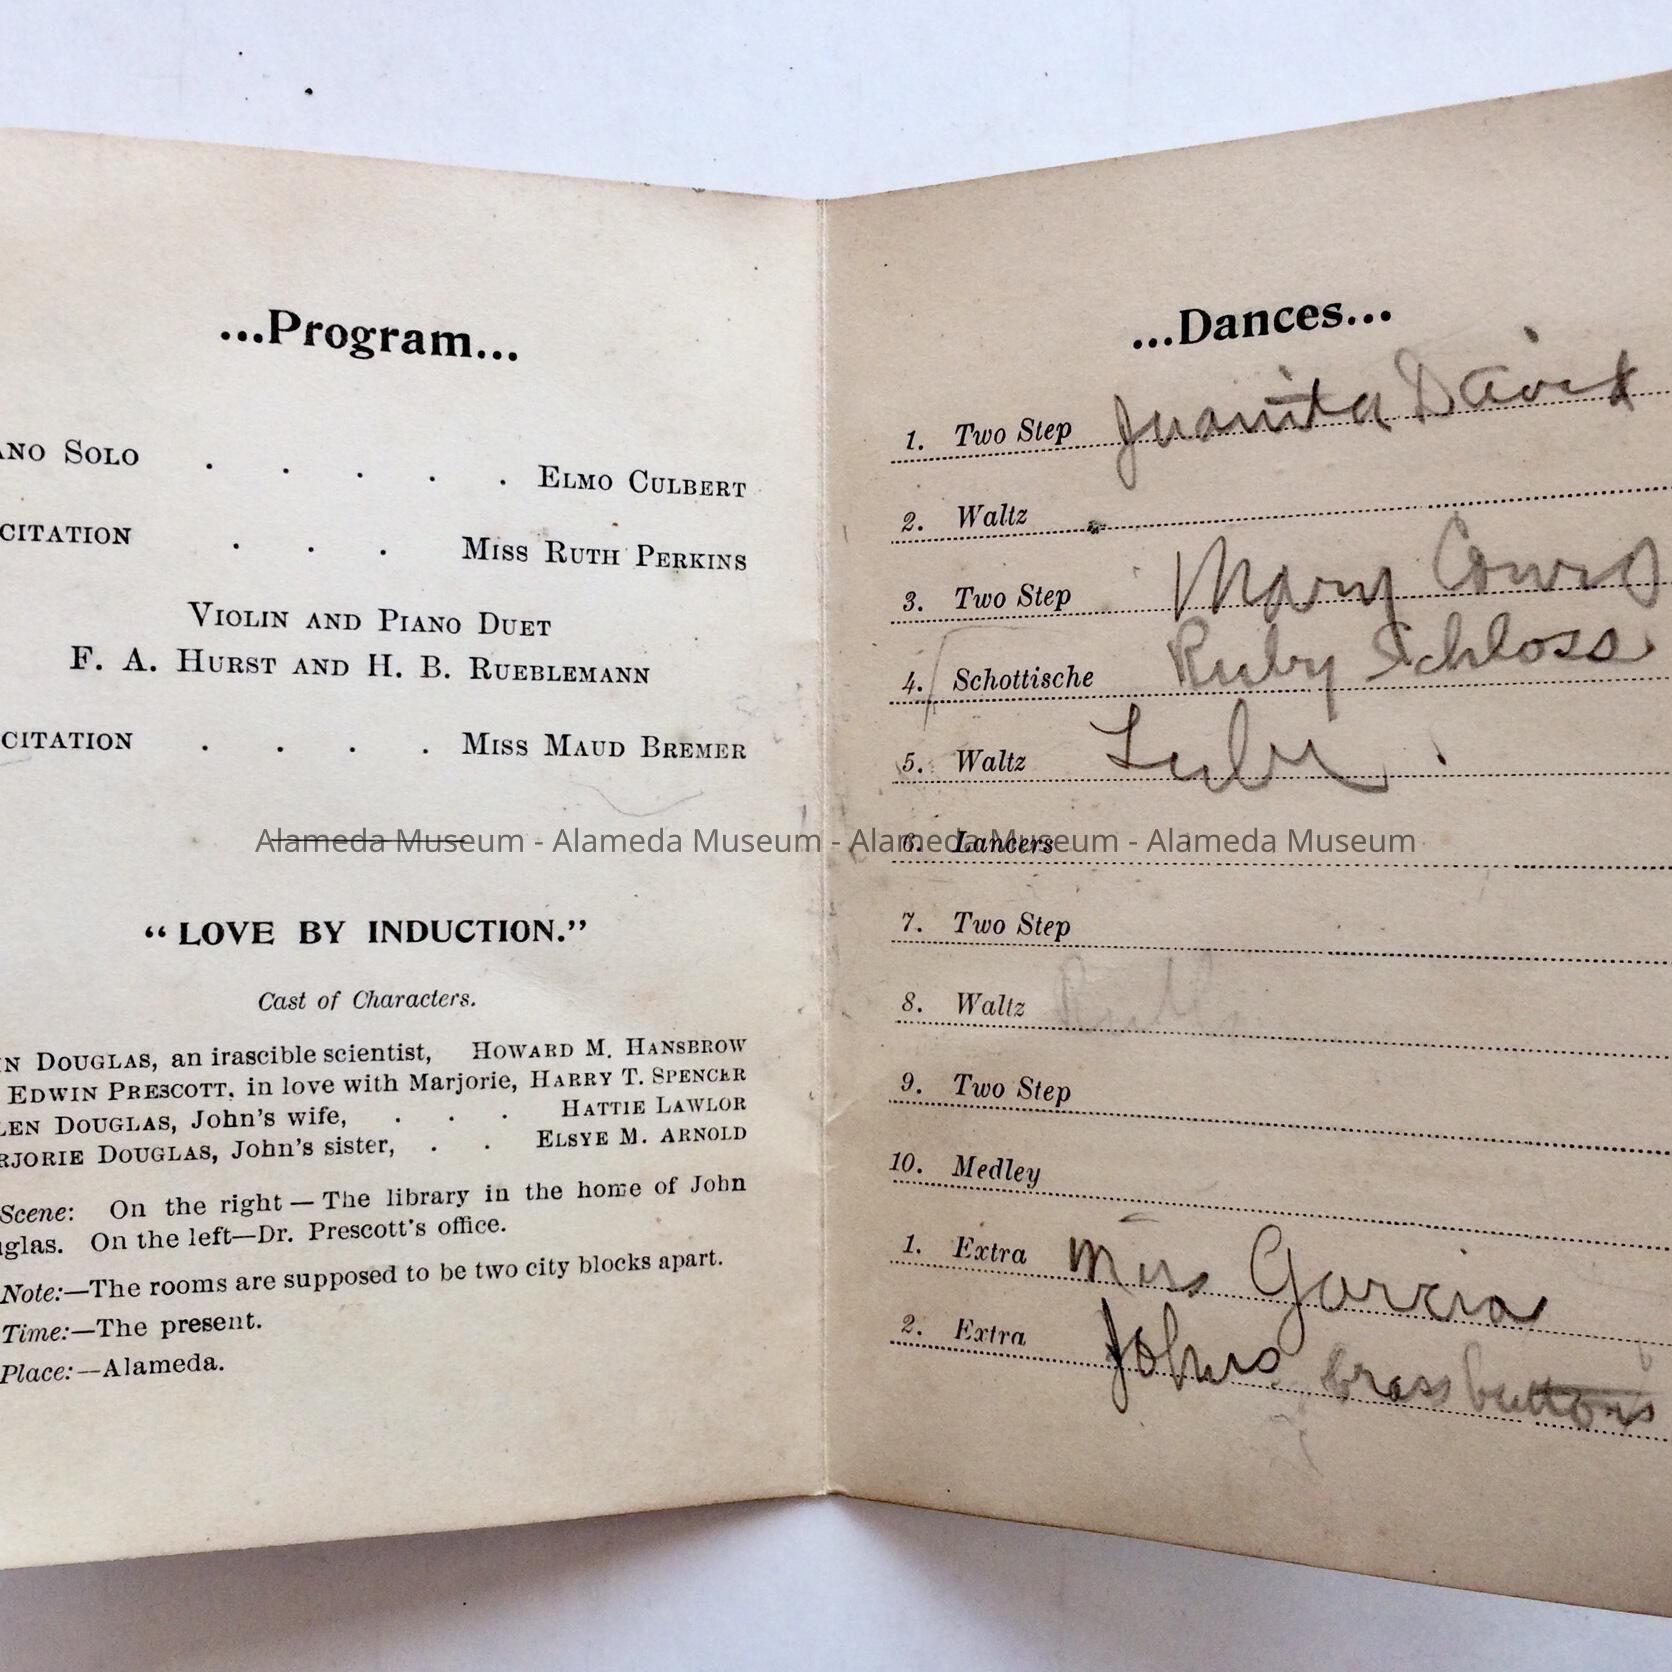 ...Program...
ANO SOLO . . . . . ELMO CULBERT
CITATION . . . MISS RUTH PERKINS
VIOLIN AND PIANO DUET
F. A. HURST AND H. B. RUEBLEMANN
CITATION . . . . MISS MAUD BREMER
"LOVE BY INDUCTION."
Cast of Characters.
N DOUGLAS, an irascible scientist, HOWARD M. HANSBROW
EDWIN PRESCOTT, in love with Marjorie, HARRY T. SPENCER
LEN DOUGLAS, John's wife, . . . HATTIE LAWLOR
RJORIE DOUGLAS, John's sister, . . ELSYE M. ARNOLD
Scene: On the right — The library in the home of John
glas. On the left—Dr. Prescott's office.
Note:—The rooms are supposed to be two city blocks apart.
Time:—The present.
Place:—Alameda.
...Dances...
1. Two Step Juanita David
2. Waltz
3. Two Step Mary
4. Schottische Ruby Schloss
5. Waltz
6. Lancers
7. Two Step
8. Waltz
9. Two Step
10. Medley
1. Extra Miss Garcia
2. Extra brass buttons
Alameda Museum - Alameda Museum - Alameda Museum - Alameda Museum